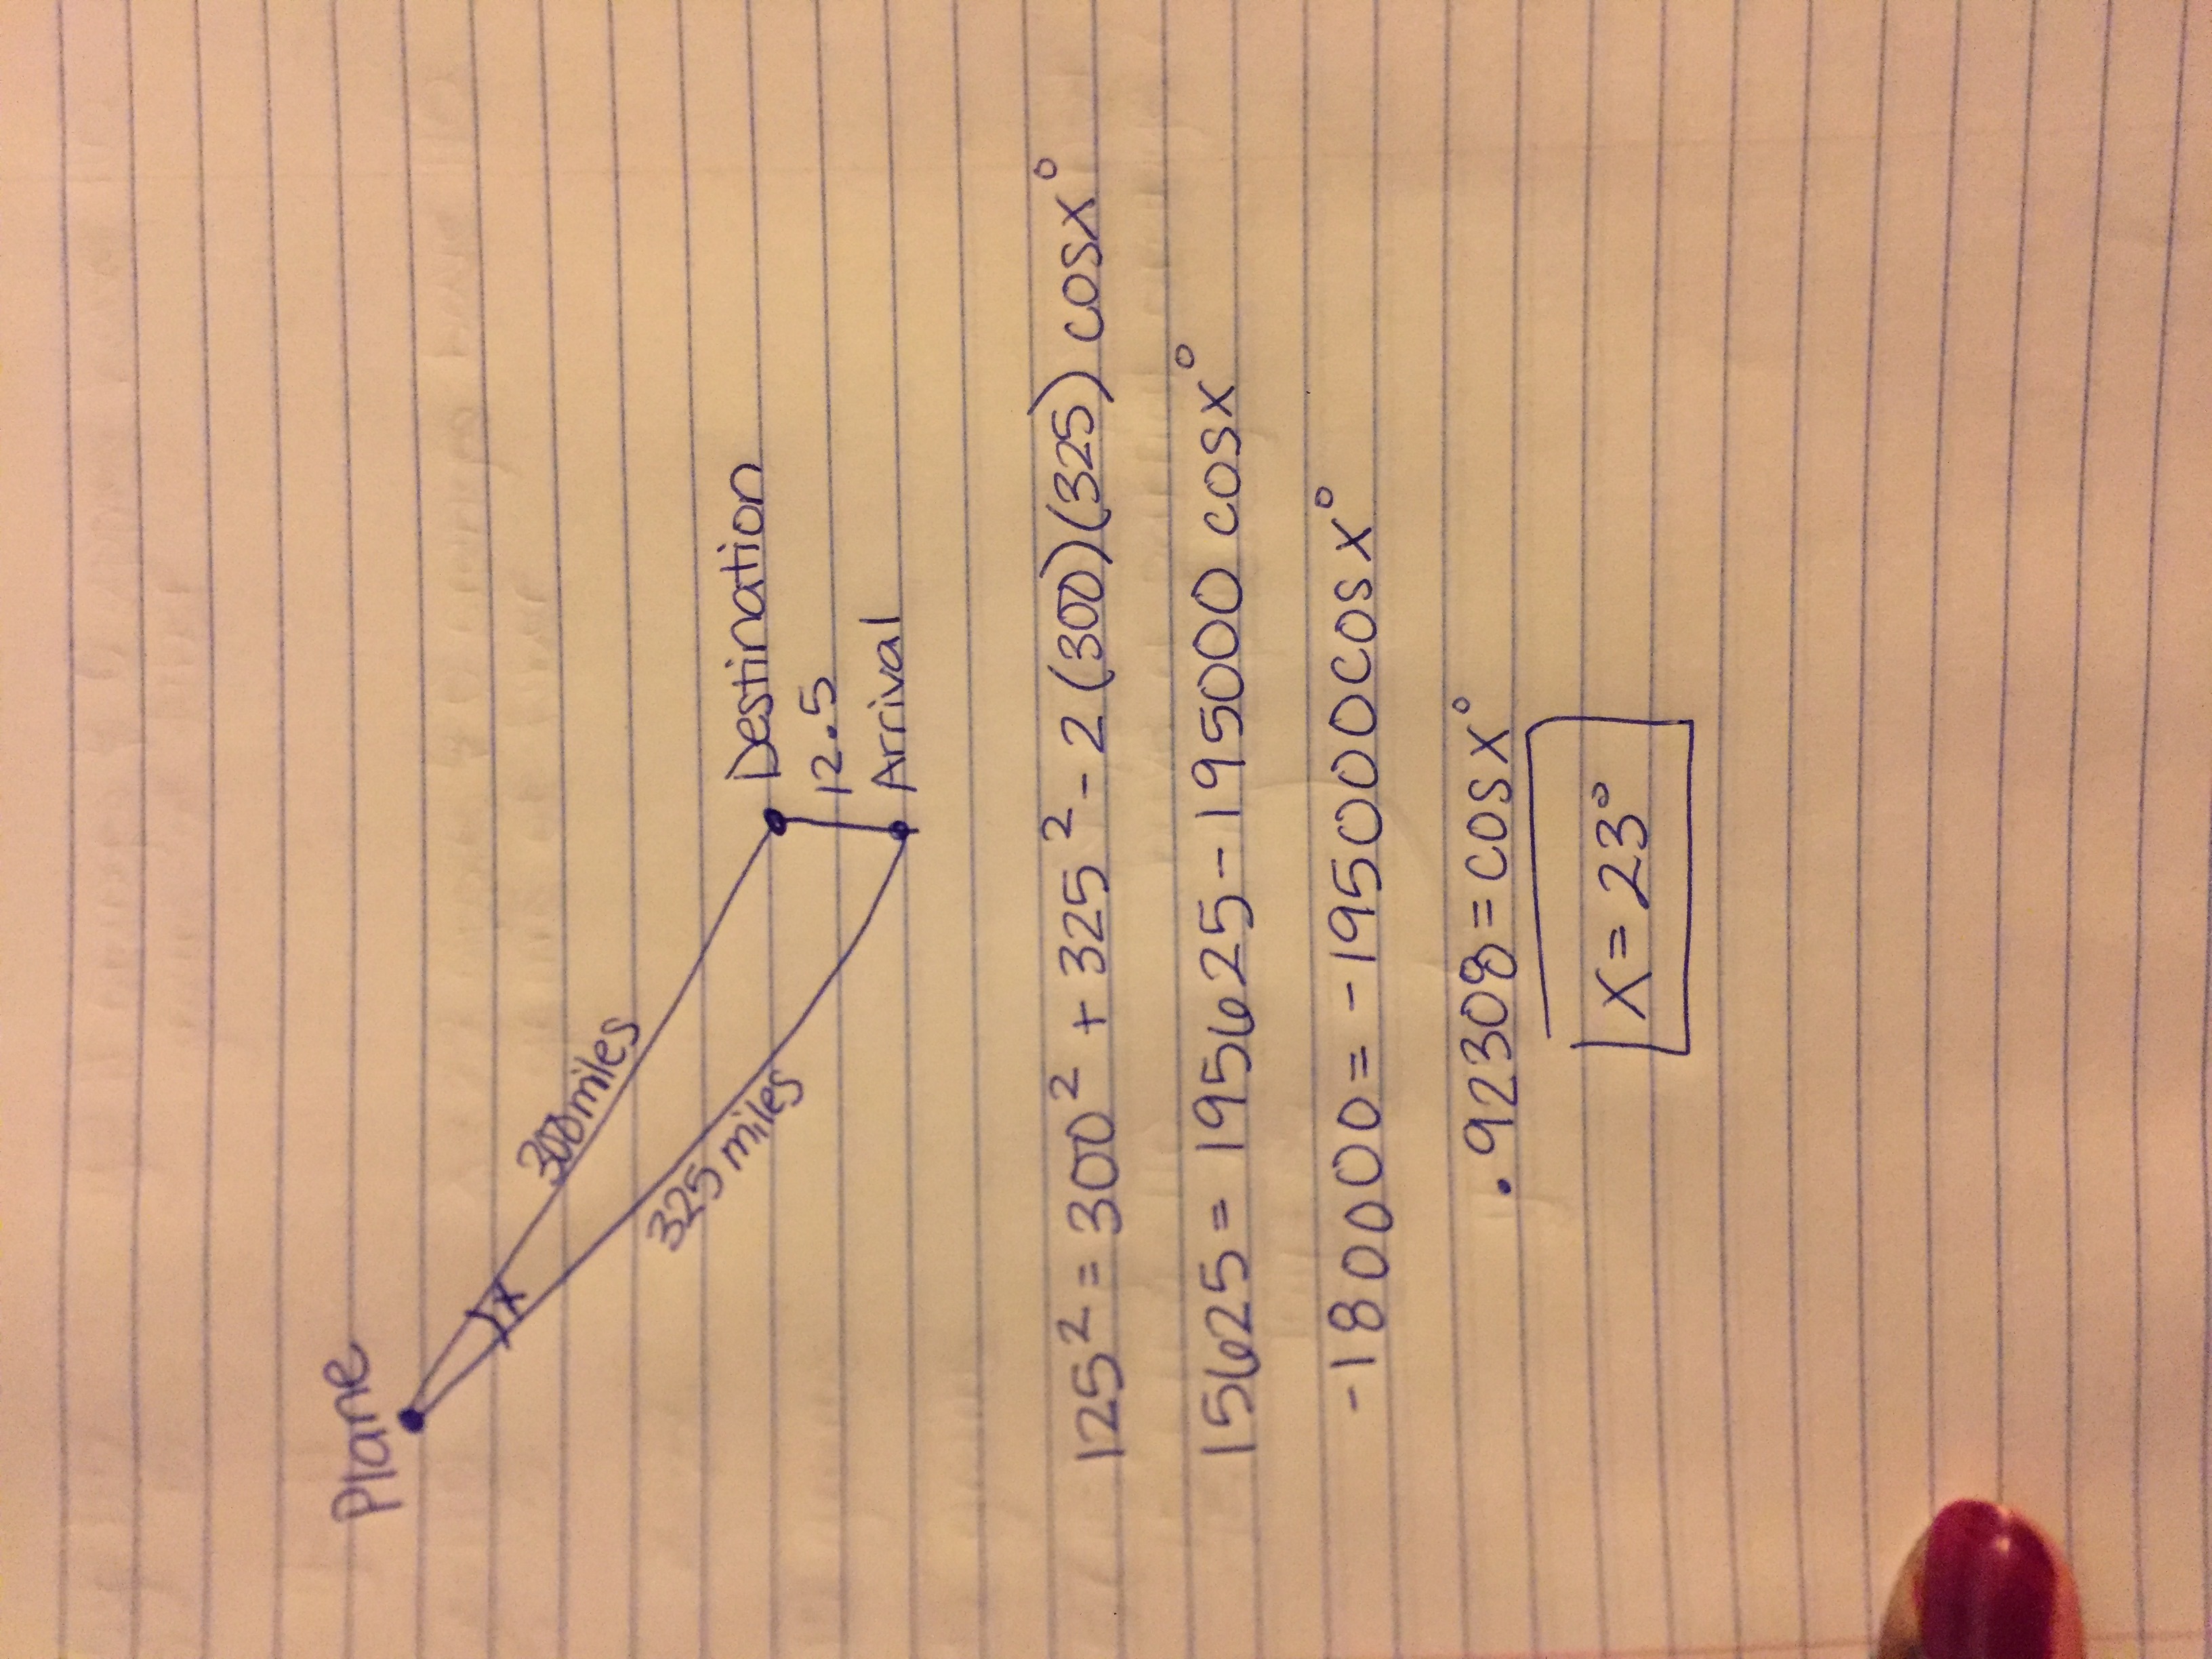 Plane
300miles
x
325 miles
Destination
12.5
Arrival
125² = 300² + 325² - 2(300)(325) cosx°
15625 = 195625 - 195000 cosx°
-180000 = -195000cosx°
.92308 = cosx°
x = 23°